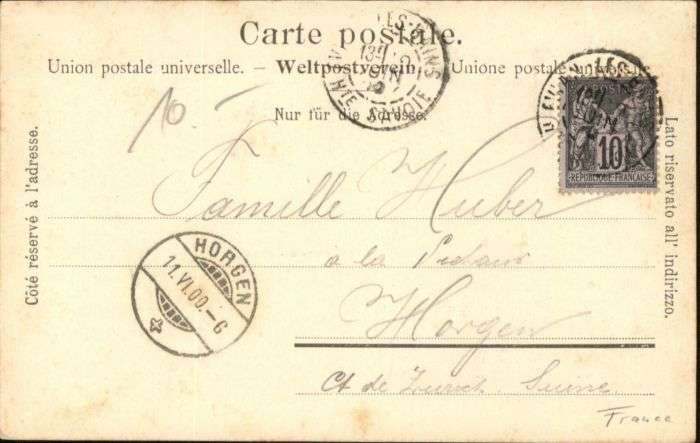 Carte postale.
Union postale universelle. — Weltpostverein. Unione postale
Nur für die Adresse.
Côté réservé à l'adresse.
Lato riservato all' indirizzo.
LES-BAINS
Hte SAVOIE
10
REPUBLIQUE FRANÇAISE
10.-
Famille Huber
a la
Horgen
Ct de Suisse
HORGEN
11.VI.00.-6
France